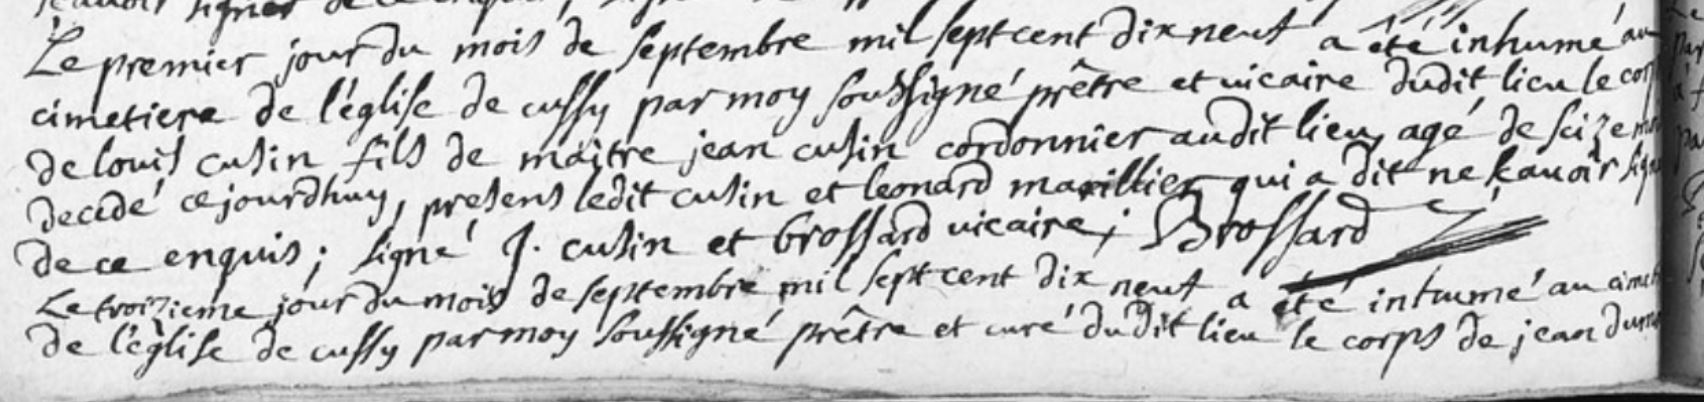 Le premier jour du mois de septembre mil sept cent dix neuf a été inhumé au
cimetiere de l'église de cussy par moy soussigné prêtre et vicaire dudit lieu le corp
de louis cusin fils de maître jean cusin cordonnier audit lieu, agé de seize
decedé ce jourdhuy, presens ledit cusin et leonard marillier qui a dit ne scavoir
de ce enquis; signé J. cusin et brossard vicaire; Brossard
Le troizieme jour du mois de septembre mil sept cent dix neuf a été inhumé au
de l'église de cussy par moy soussigné prêtre et curé dudit lieu le corps de jean